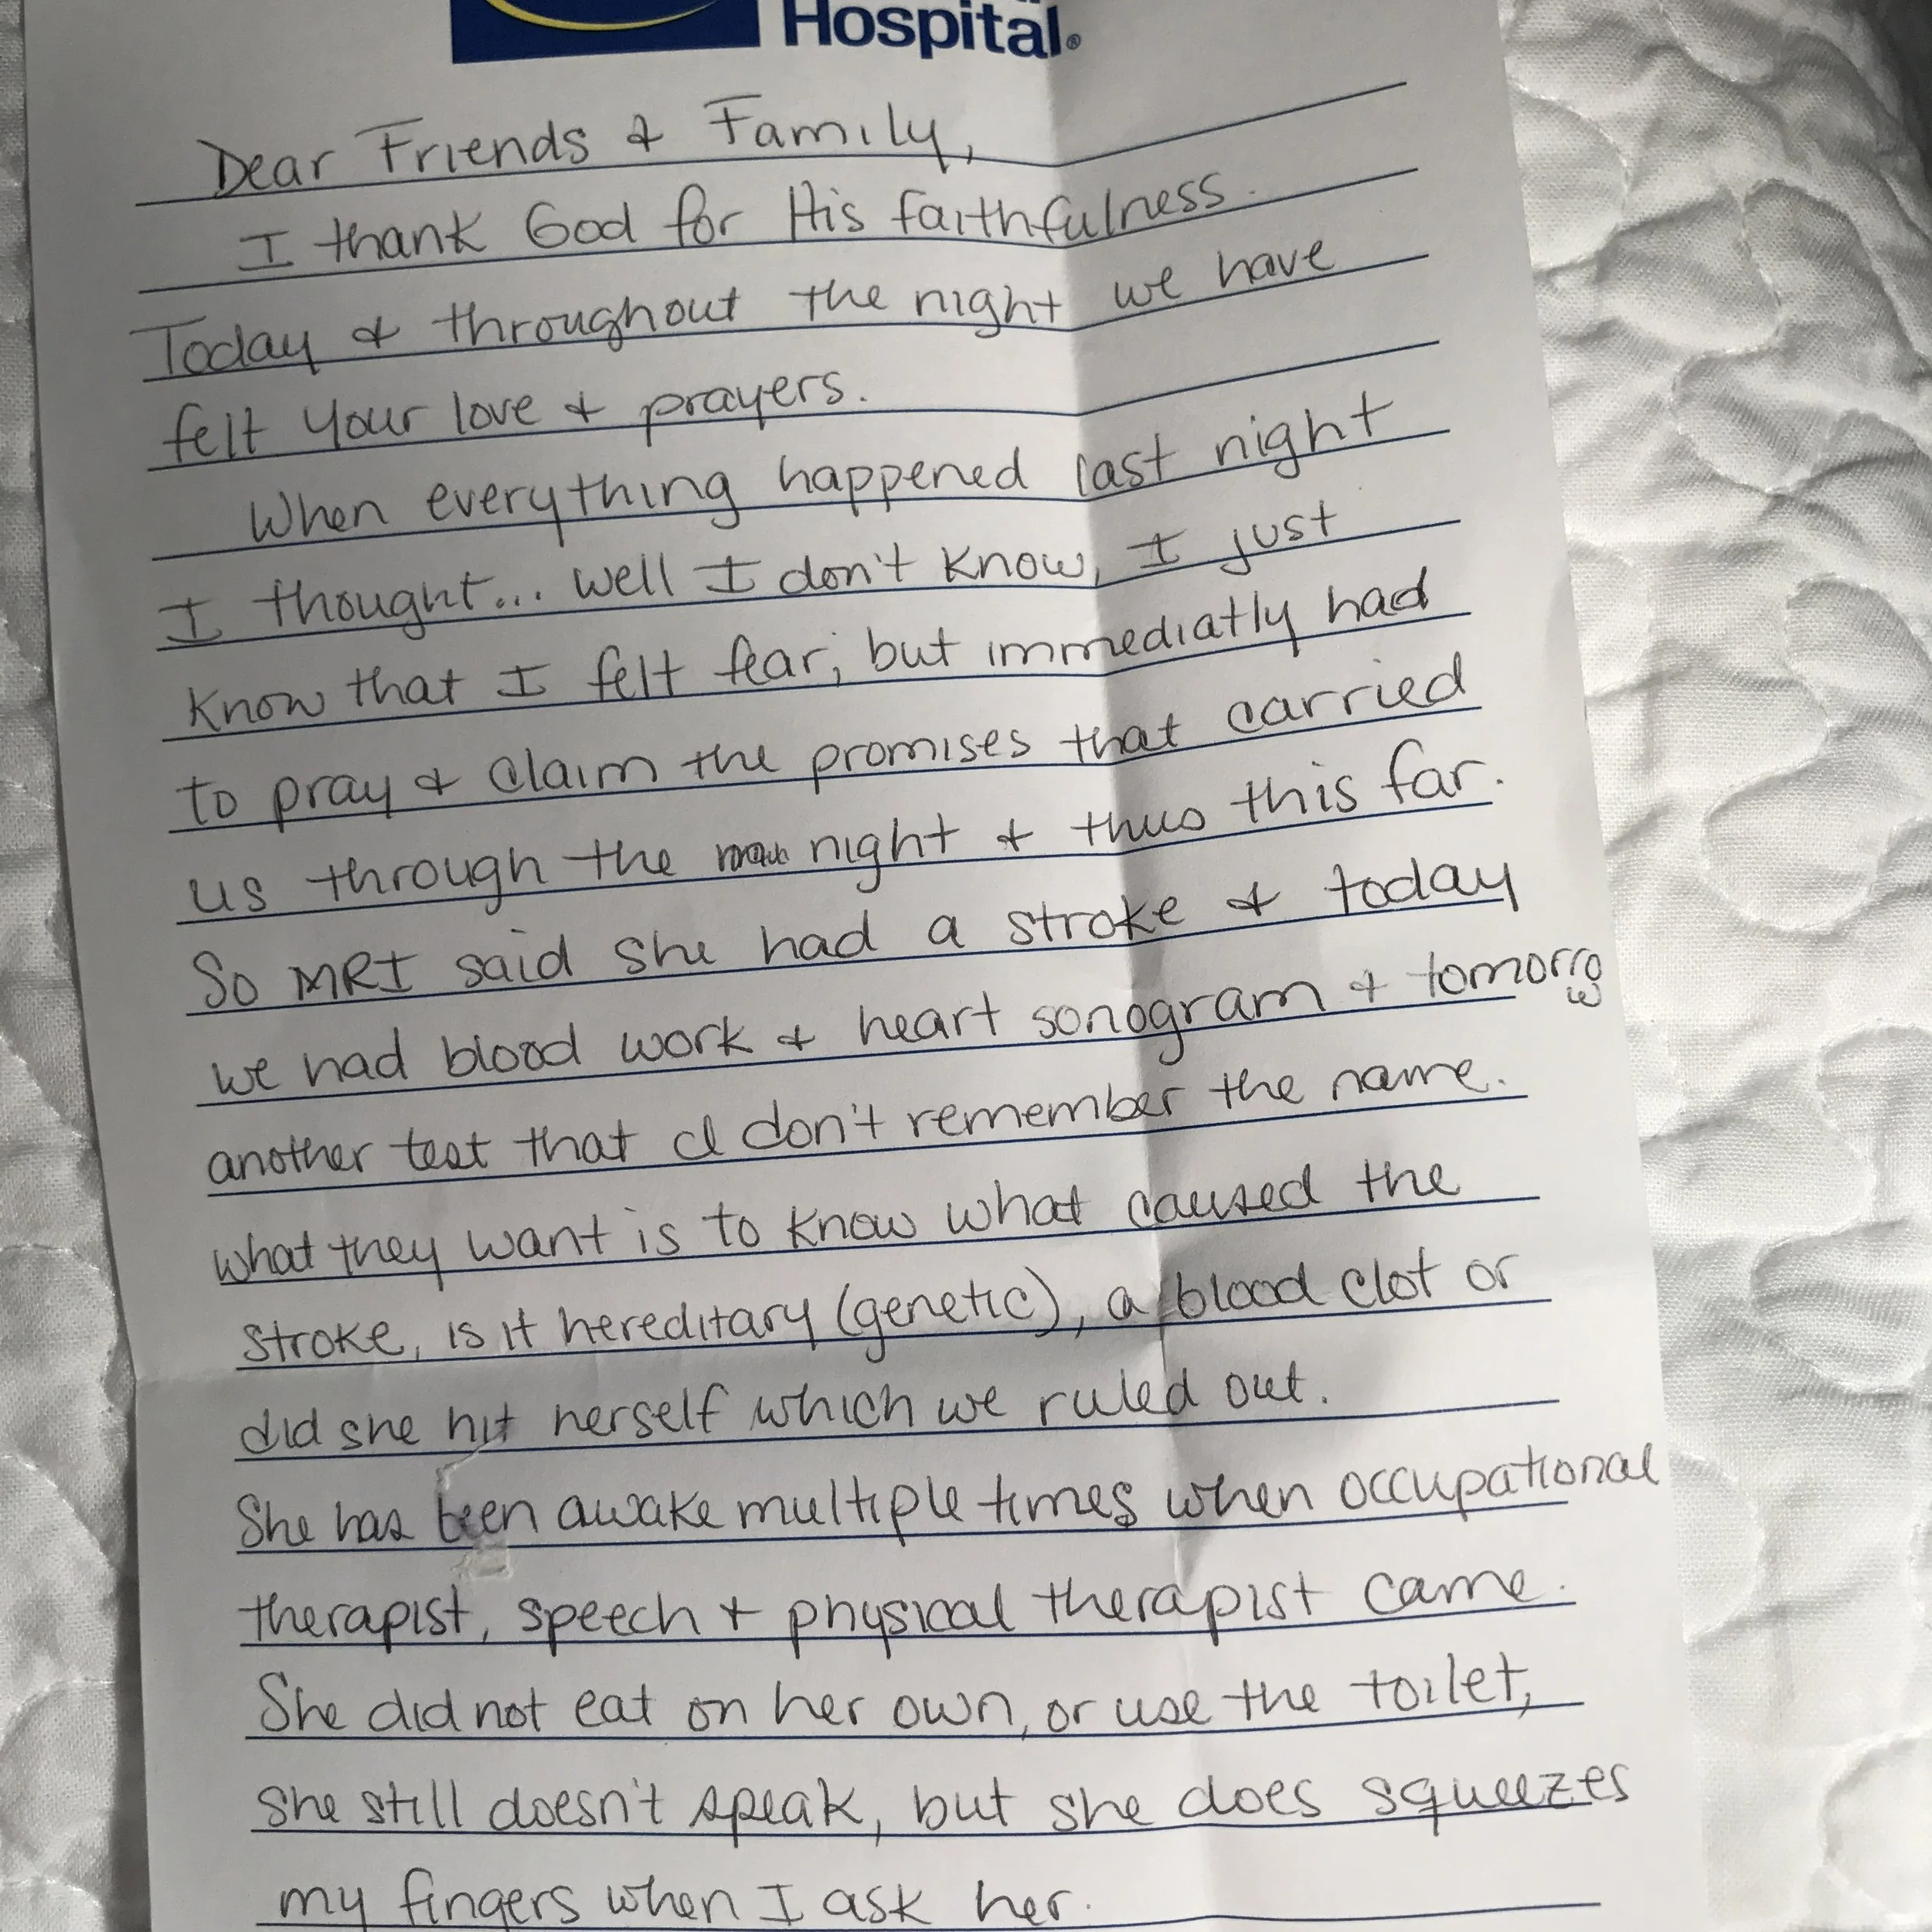 Hospital®
Dear Friends & Family,
I thank God for His faithfulness.
Today & throughout the night we have
felt your love & prayers.
When everything happened last night
I thought... well I don't know, I just
know that I felt fear, but immediatly had
to pray & claim the promises that carried
us through the night & thus this far.
So MRI said she had a stroke & today
we had blood work & heart sonogram & tomorrow
another test that I don't remember the name.
what they want is to know what caused the
stroke, is it hereditary (genetic), a blood clot or
did she hit herself which we ruled out.
She has been awake multiple times when occupational
therapist, speech & physical therapist came.
She did not eat on her own, or use the toilet,
she still doesn't speak, but she does squeezes
my fingers when I ask her.